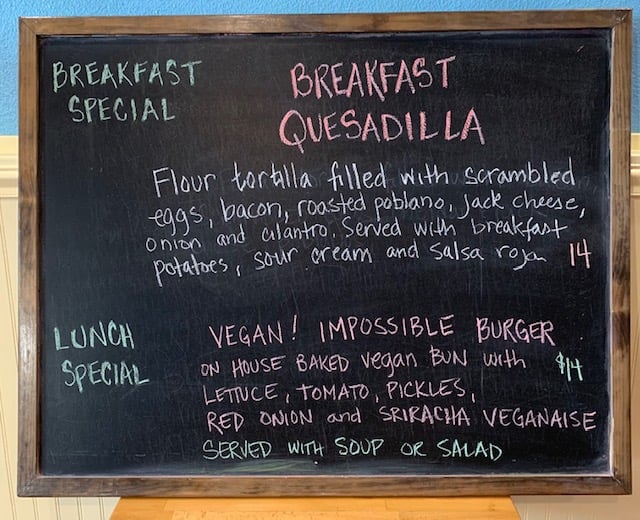 BREAKFAST SPECIAL
BREAKFAST
QUESADILLA
Flour tortilla filled with scrambled
eggs, bacon, roasted poblano, jack cheese,
onion and cilantro. Served with breakfast
potatoes, sour cream and salsa roja 14
LUNCH SPECIAL
VEGAN! IMPOSSIBLE BURGER
ON HOUSE BAKED vegan BUN with $14
LETTUCE, TOMATO, PICKLES,
RED ONION and SRIRACHA VEGANAISE
SERVED WITH SOUP OR SALAD